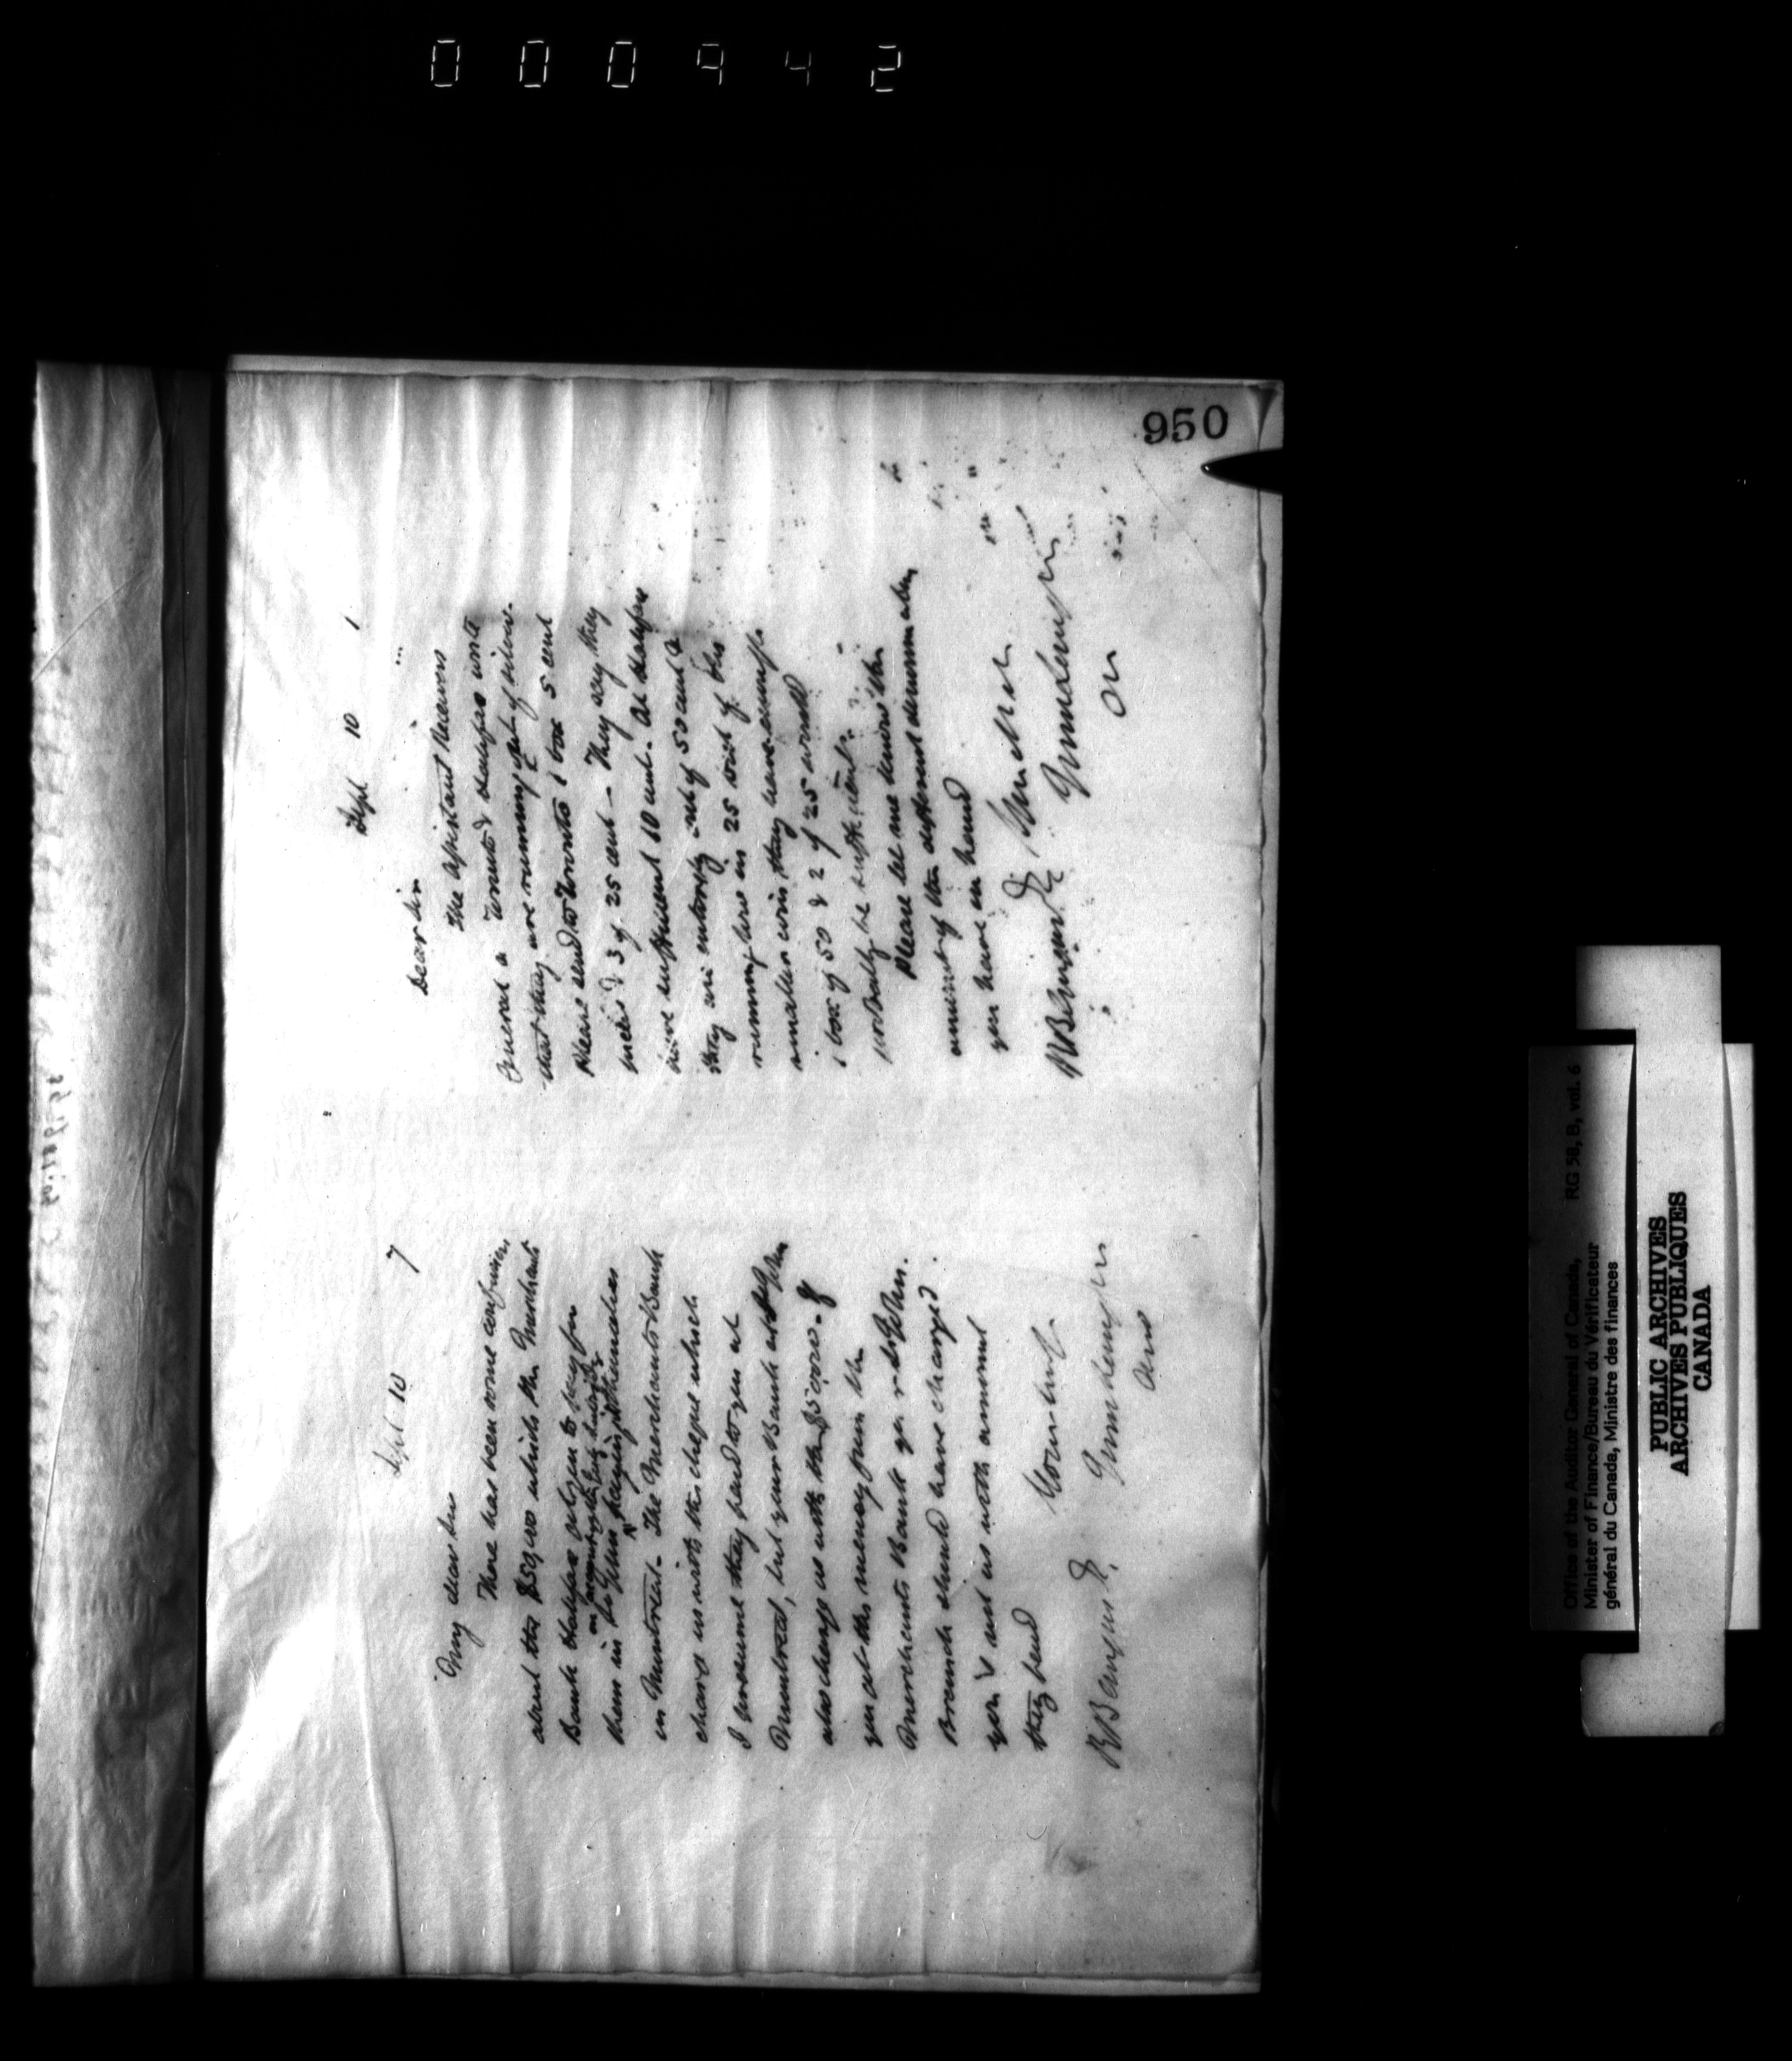 000942
950
Sept 10 7
My dear Sir
There has been some confusion
about the $50,000 which the Merchants
Bank Halifax
on account
them in
in Montreal. The Merchants Bank
charge us with this cheque which
I presume they paid to you at
Montreal, but your Bank at St John
also charge us with the $50000. If
you got the money from the
Merchants Bank yr St John
Branch should have charged
you & not us with amount
they paid
Yours truly
R B Angus Esq.
Sept 10 1
Dear Sir
The Assistant Receivers
General at Toronto & Halifax write
that they are running out of silver.
Please send to Toronto 1 box 5 cent
pieces & 3 of 25 cent - They say they
have sufficient 10 cent. At Halifax
they are entirely out of 50 cent &
running low in 25 but of the
smaller coin they have enough.
1 box of 50 & 2 of 25 would
probably be sufficient.
Please let me know the
amount of the different denomination
you have on hand
Office of the Auditor General of Canada, RG 58, B, vol. 6
Minister of Finance/Bureau du Vérificateur
général du Canada, Ministre des finances
PUBLIC ARCHIVES
ARCHIVES PUBLIQUES
CANADA